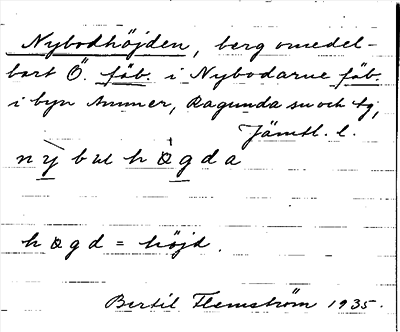 Nybodhöjden, berg omedel-
bart Ö. fäb. i Nybodarne fäb.
i byn Ammer, Ragunda sn och tg,
Jämtl. l.
högd = höjd.
Bertil Flemström 1935.